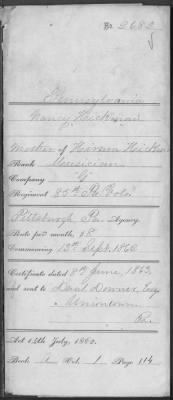 No. 2682
Pennsylvania
Nancy Heickman
Mother of Hiram Heick
Rank Musician
Company "G"
Regiment 85th Pa Vols
Pittsburgh Pa. Agency
Rate per month, $8
Commencing 13th Sept. 1862
Certificate dated 8th June, 1863,
and sent to Danl Downer, Esq
Uniontown
Pa.
Act 14th July, 1862.
Book A Vol. 1 Page 114